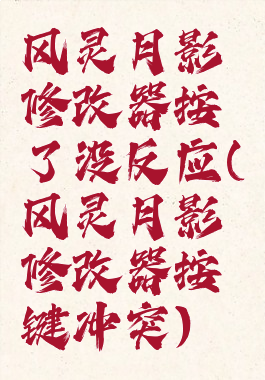 风灵月影
修改器按
了没反应(
风灵月影
修改器按
键冲突)